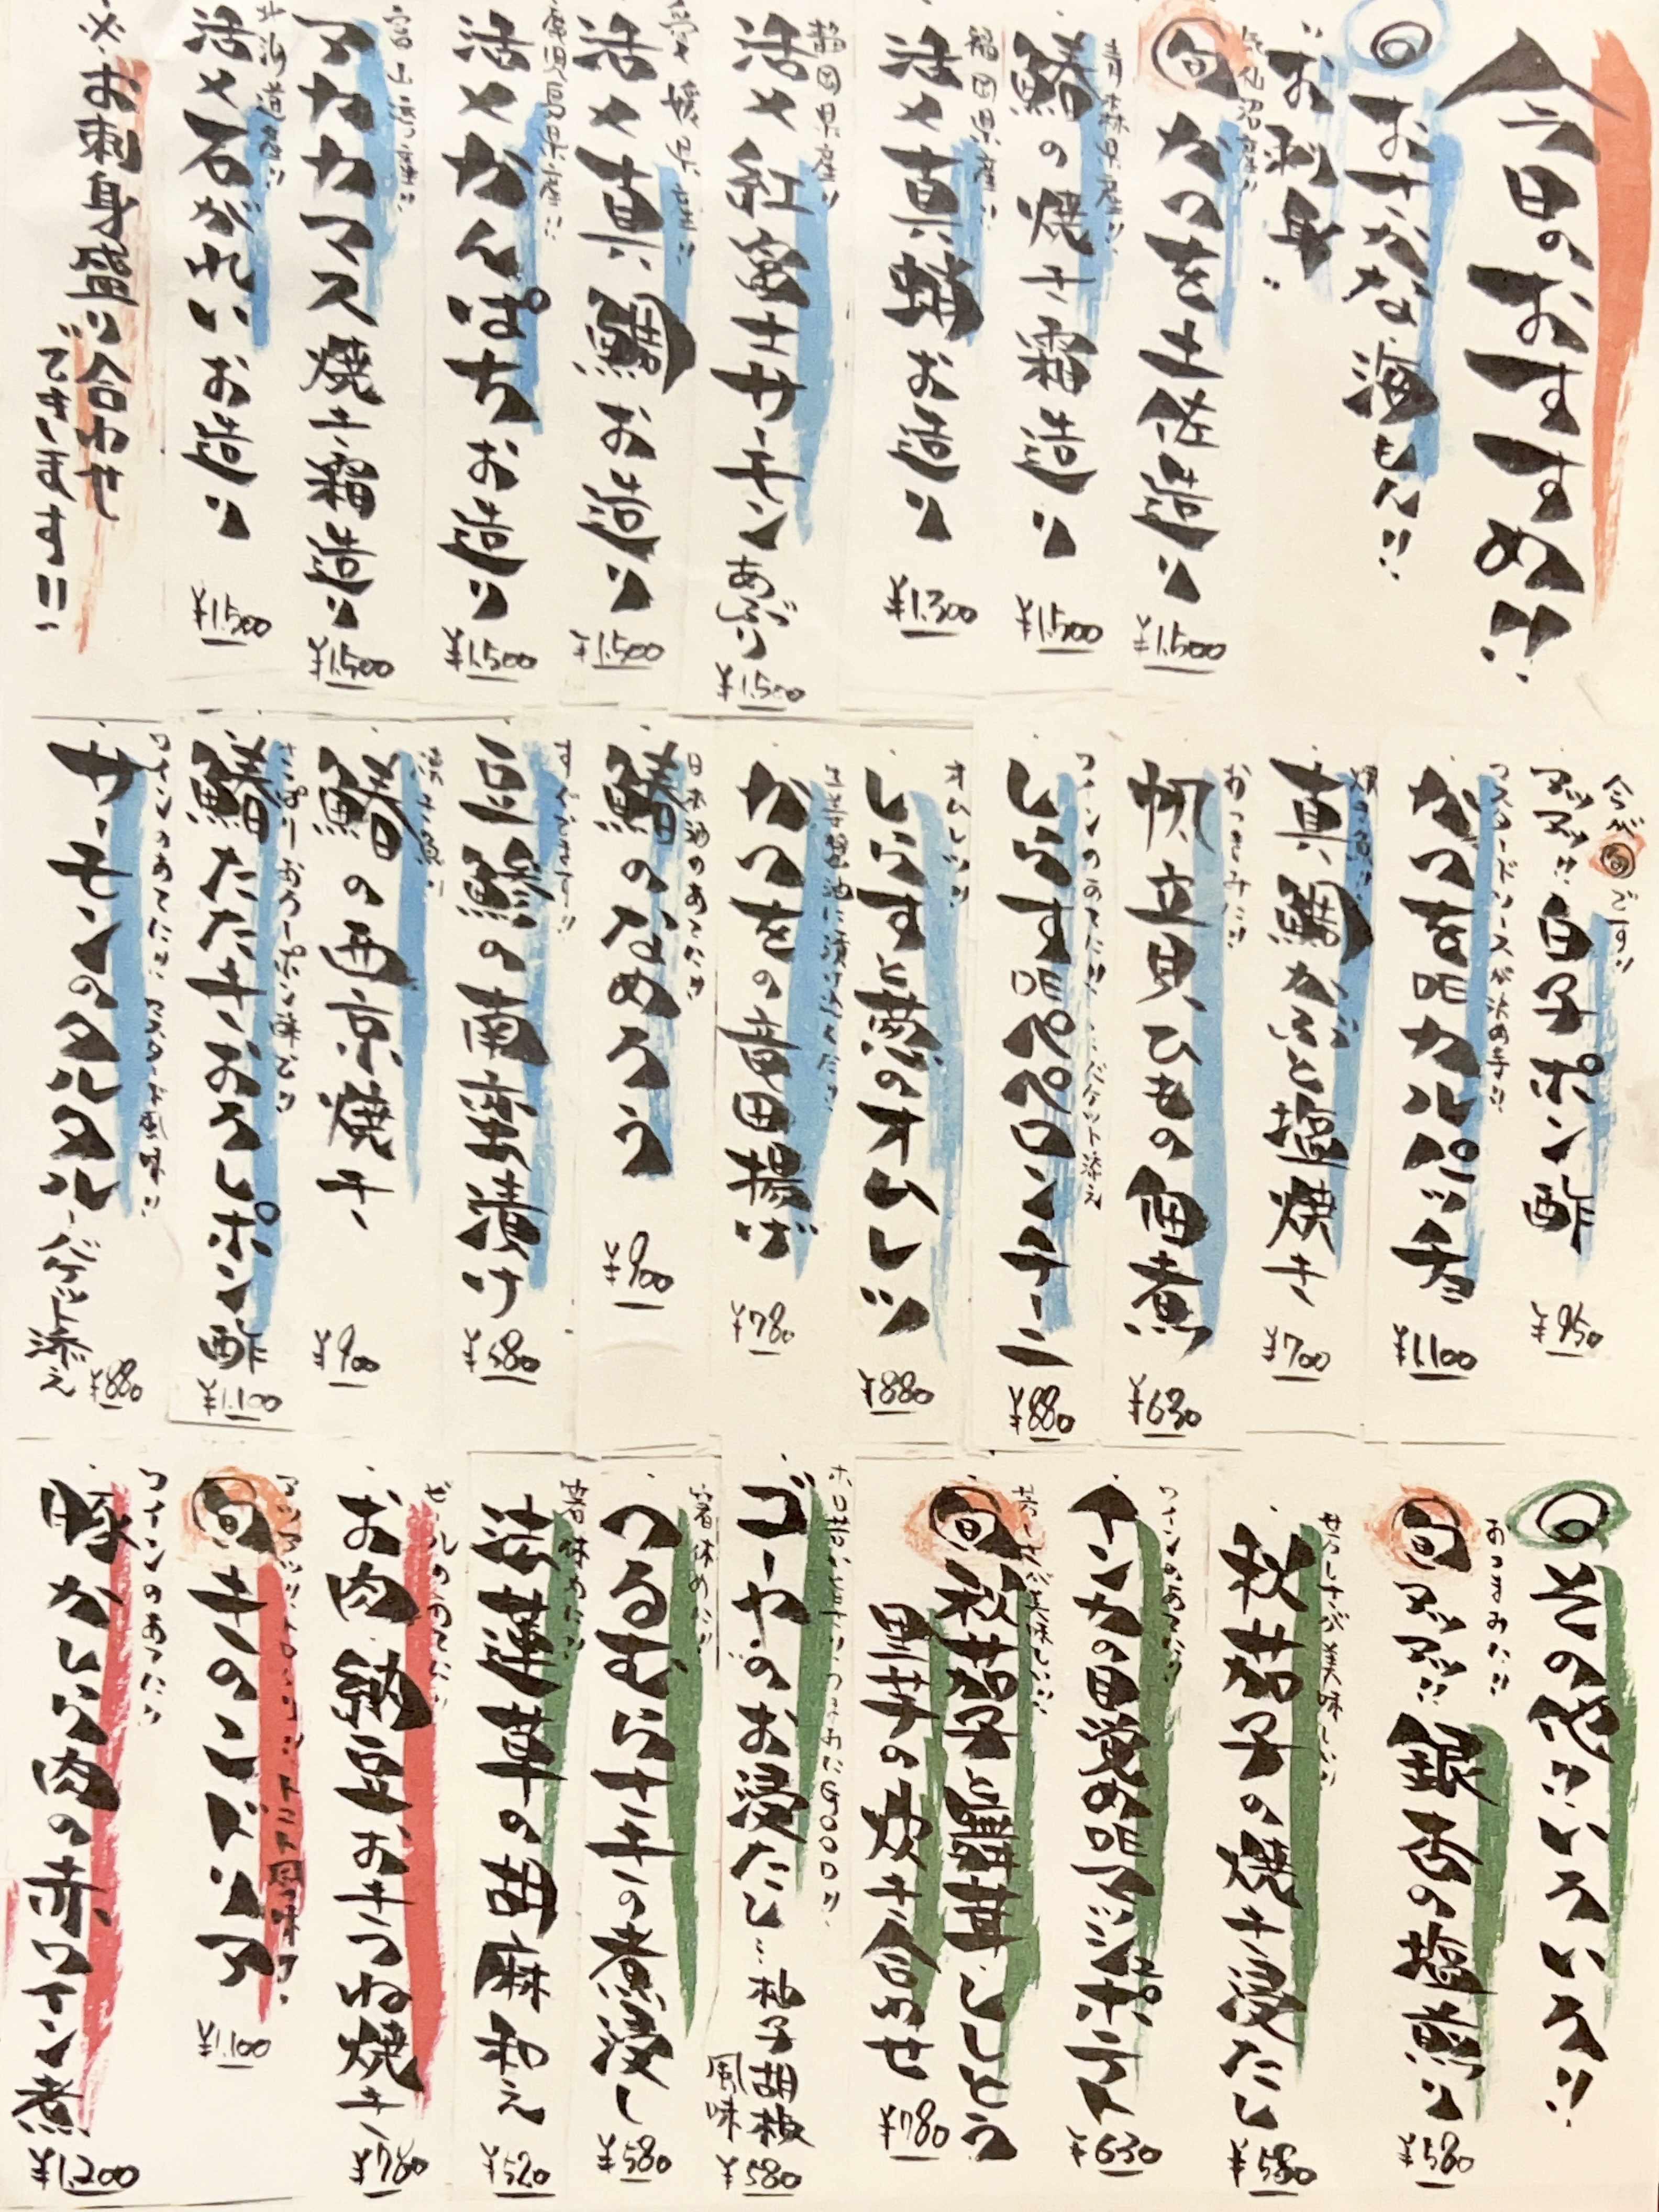 今日のおすすめ!!
◎おさかな・海もん!!
"お刺身"
気仙沼産!!
旬 かつを土佐造り ¥1,500
青森県産!!
鰆の焼き霜造り ¥1,500
福岡県産!!
活〆真蛸お造り ¥1,300
静岡県産!!
活〆紅富士サーモン あぶり ¥1,500
愛媛県産!!
活〆真鯛お造り ¥1,500
鹿児島県産!!
活〆かんぱちお造り ¥1,500
富山湾産!!
アカカマス焼き霜造り ¥1,500
北海道産!!
活〆石がれいお造り ¥1,500
※お刺身盛り合わせ
できます!!
今が旬です!!
プリプリ!!白子ポン酢 ¥950
マスタードソースが決め手!!
かつを de カルパッチョ ¥1,100
真鯛かぶと塩焼き ¥700
おつまみに!!
帆立貝ひもの旨煮 ¥630
ワインのあてに!!バケット添え
しらす de ペペロンチーニ ¥880
オムレツ!!
しらすと葱のオムレツ ¥880
かつをの竜田揚げ ¥780
日本酒のあてに!!
鰆のなめろう ¥900
豆鯵の南蛮漬け ¥580
鰆の西京焼き ¥900
さっぱりおろしポン味で!!
鰆たたき おろしポン酢 ¥1,100
ワインのあてに!! マスタード風味!!
サーモンのタルタル バケット添え ¥880
◎その他いろいろ!!
おつまみに!!
旬 プリプリ!!銀杏の塩煎り ¥580
やさしさが美味しい!!
秋茄子の焼き浸たし ¥580
ワインのあてに!!
ナンカの田渡 de アンポテ ¥630
旬 秋茄子と舞茸ししとう
里芋の炊き合わせ ¥780
ゴーヤのお浸たし…柚子胡椒
風味 ¥580
箸休めに!!
つるむらさきの煮浸し ¥580
箸休めに!!
菠薐草の胡麻和え ¥520
お肉納豆おきつね焼き ¥780
旬 きのこドリア ¥1,100
ワインのあてに!!
豚かしら肉の赤ワイン煮 ¥1,200